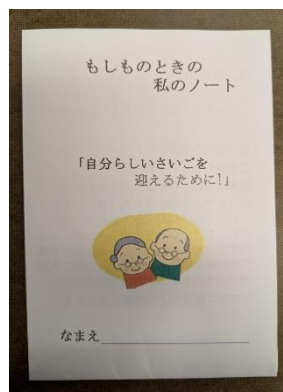 もしものときの
私のノート
「自分らしいさいごを
迎えるために!」
なまえ